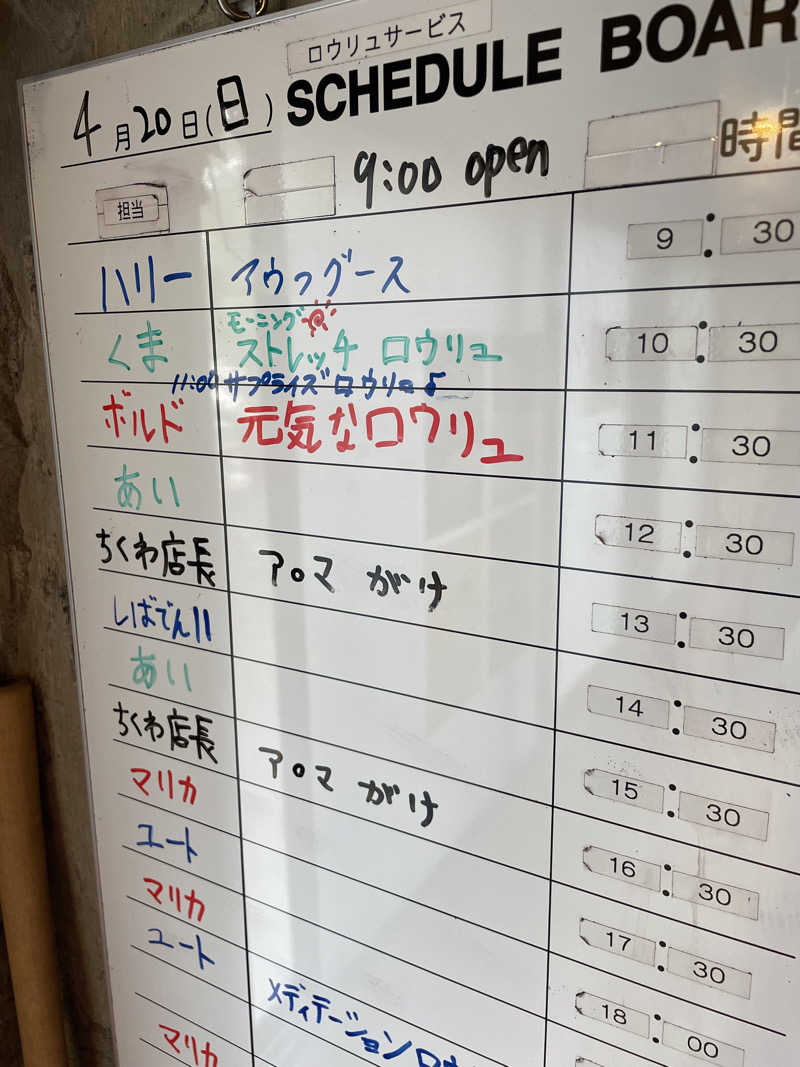 ロウリュサービス
4月20日(日) SCHEDULE BOAR
担当 9:00 open 時間
ハリー アウフグース 9:30
モーニング
くま ストレッチ ロウリュ 10:30
11:00 サプライズロウリュ♪
ボルド 元気なロウリュ 11:30
あい 12:30
ちくわ店長 アロマ がけ 13:30
しばでん!! 14:30
あい 15:30
ちくわ店長 アロマ がけ 16:30
マリカ 17:30
ユート 18:00
マリカ
ユート
メディテーションロウ
マリカ